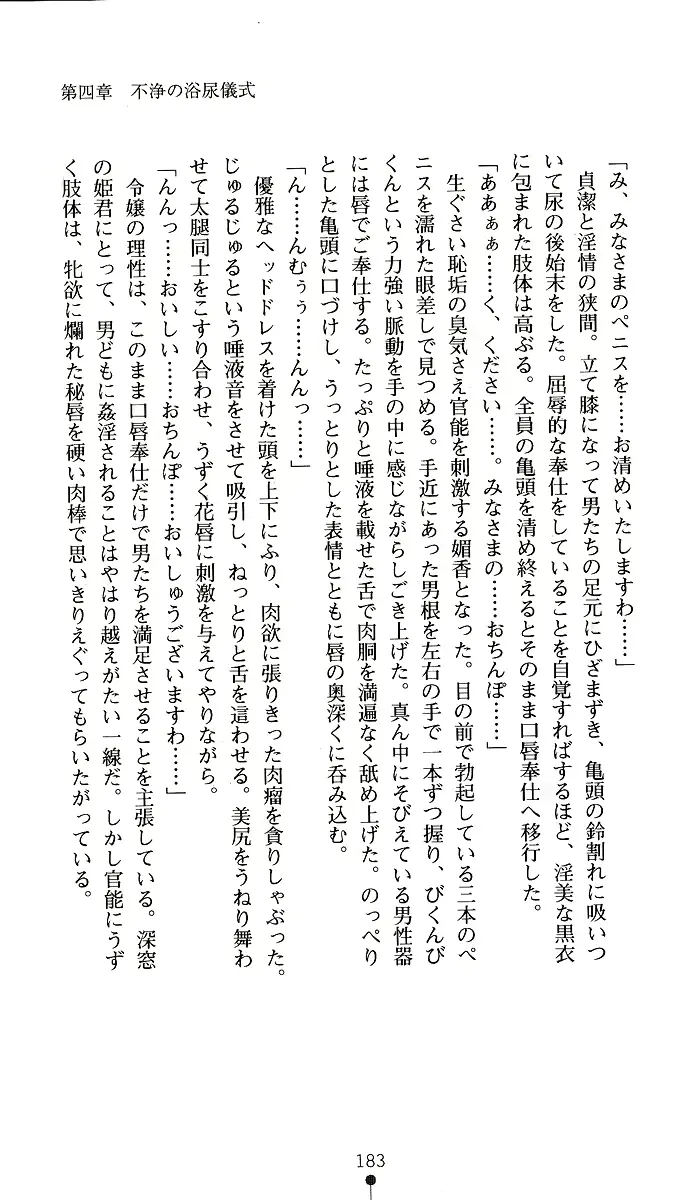 第四章　不浄の浴尿儀式
「み、みなさまのペニスを……お清めいたしますわ……」
貞潔と淫情の狭間。立て膝になって男たちの足元にひざまずき、亀頭の鈴割れに吸いつ
いて尿の後始末をした。屈辱的な奉仕をしていることを自覚すればするほど、淫美な黒衣
に包まれた肢体は高ぶる。全員の亀頭を清め終えるとそのまま口唇奉仕へ移行した。
「ああぁぁ……く、ください……。みなさまの……おちんぽ……」
生ぐさい恥垢の臭気さえ官能を刺激する媚香となった。目の前で勃起している三本のペ
ニスを濡れた眼差しで見つめる。手近にあった男根を左右の手で一本ずつ握り、びくんび
くんという力強い脈動を手の中に感じながらしごき上げた。真ん中にそびえている男性器
には唇でご奉仕する。たっぷりと唾液を載せた舌で肉胴を満遍なく舐め上げた。のっぺり
とした亀頭に口づけし、うっとりとした表情とともに唇の奥深くに呑み込む。
「ん……んむぅぅ……んんっ……」
優雅なヘッドドレスを着けた頭を上下にふり、肉欲に張りきった肉瘤を貪りしゃぶった。
じゅるじゅるという唾液音をさせて吸引し、ねっとりと舌を這わせる。美尻をうねり舞わ
せて太腿同士をこすり合わせ、うずく花唇に刺激を与えてやりながら。
「んんっ……おいしい……おちんぽ……おいしゅうございますわ……」
令嬢の理性は、このまま口唇奉仕だけで男たちを満足させることを主張している。深窓
の姫君にとって、男どもに姦淫されることはやはり越えがたい一線だ。しかし官能にうず
く肢体は、牝欲に爛れた秘唇を硬い肉棒で思いきりえぐってもらいたがっている。
183